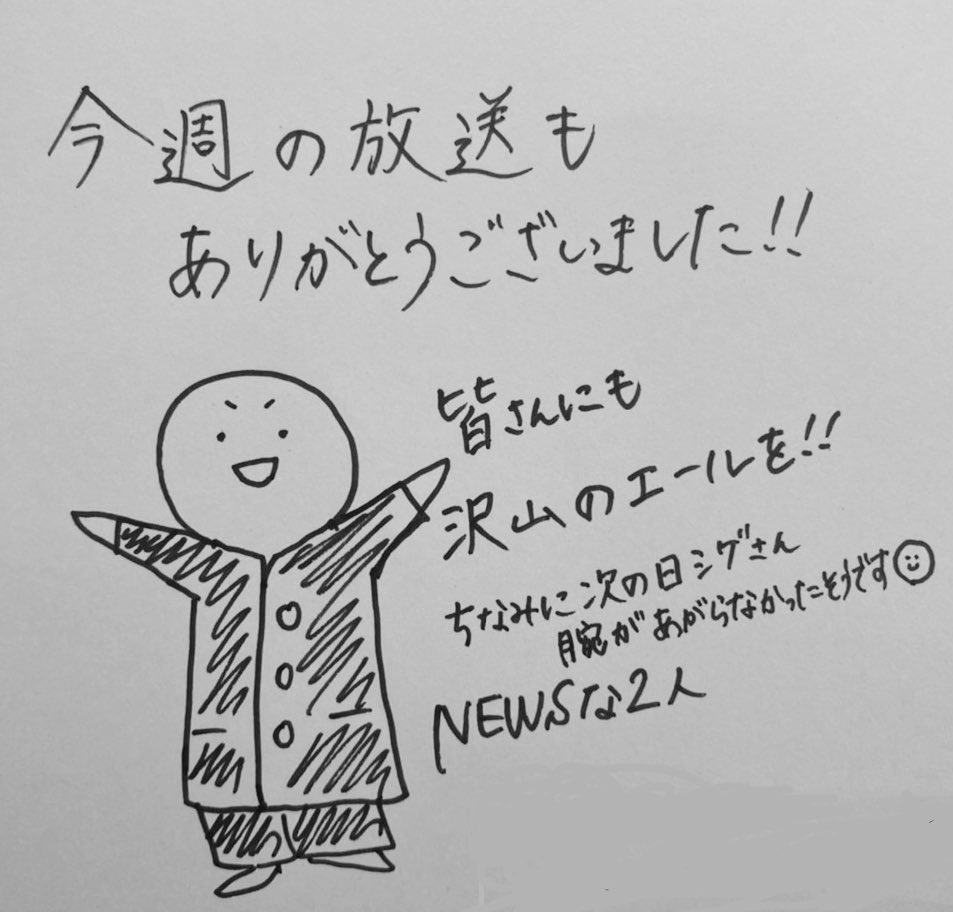 今週の放送も
ありがとうございました!!
皆さんにも
沢山のエールを!!
ちなみに次の日シゲさん
腕があがらなかったそうです
NEWSな2人